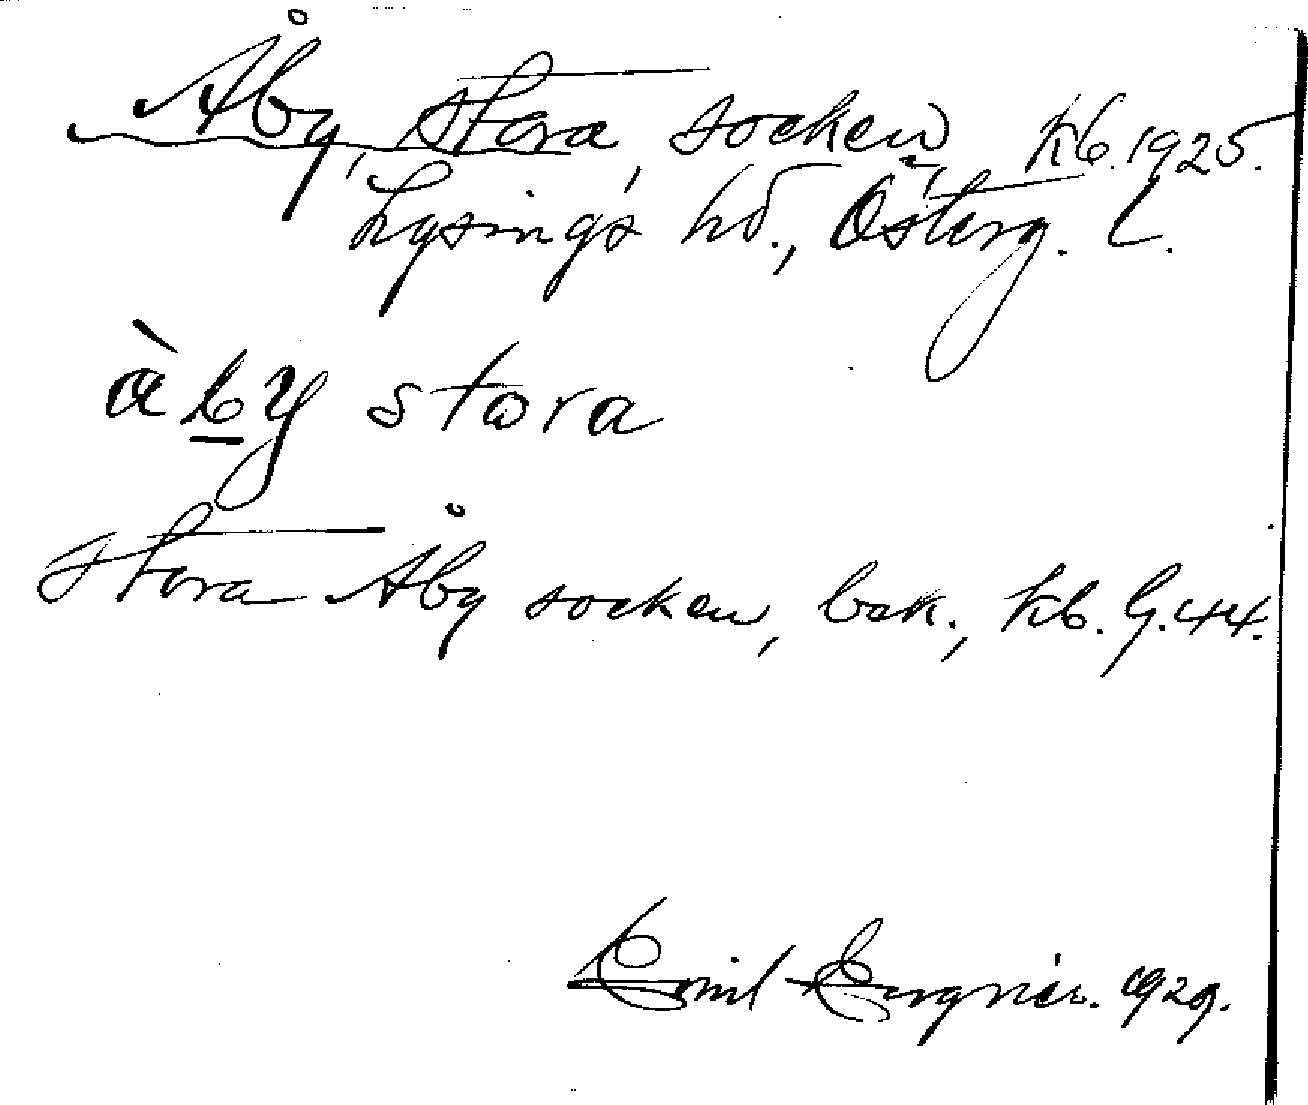 Åby, Stora, socken, kb. 1925.
Lysings hd., Österg. L.
àby stora
Stora Åby socken, bek., kb. G. 44.
Emil 1929.